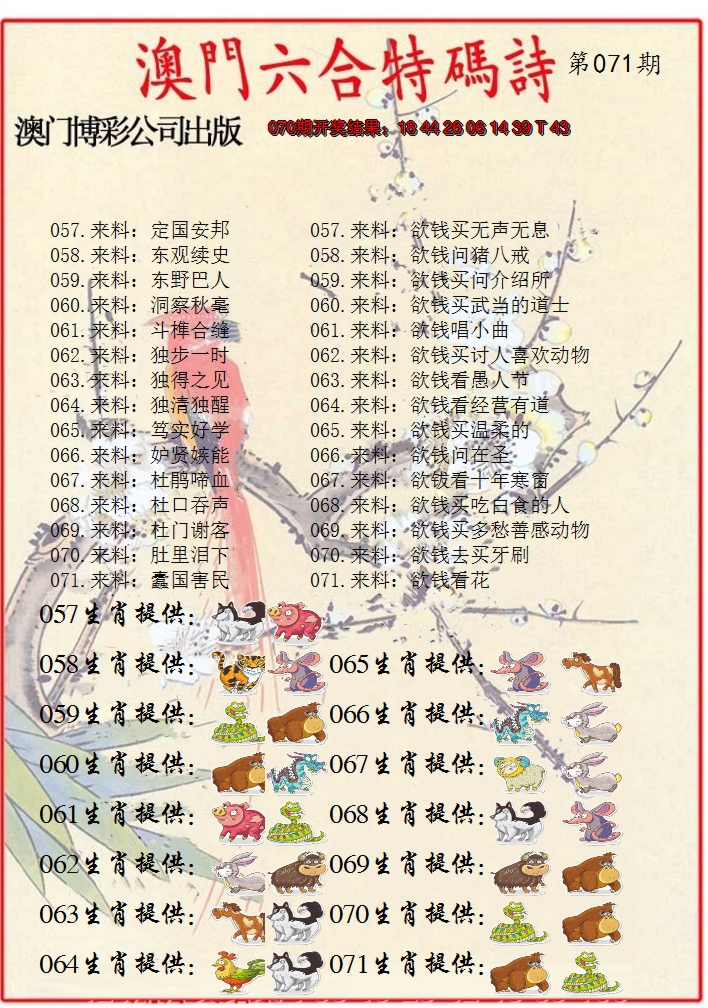 澳門六合特碼詩 第071期
澳门博彩公司出版 070期开奖结果：18 44 26 06 14 39 T 43
057.来料：定国安邦 057.来料：欲钱买无声无息
058.来料：东观续史 058.来料：欲钱问猪八戒
059.来料：东野巴人 059.来料：欲钱买问介绍所
060.来料：洞察秋毫 060.来料：欲钱买武当的道士
061.来料：斗榫合缝 061.来料：欲钱唱小曲
062.来料：独步一时 062.来料：欲钱买讨人喜欢动物
063.来料：独得之见 063.来料：欲钱看愚人节
064.来料：独清独醒 064.来料：欲钱看经营有道
065.来料：笃实好学 065.来料：欲钱买温柔的
066.来料：妒贤嫉能 066.来料：欲钱问在圣
067.来料：杜鹃啼血 067.来料：欲钱看十年寒窗
068.来料：杜口吞声 068.来料：欲钱买吃白食的人
069.来料：杜门谢客 069.来料：欲钱买多愁善感动物
070.来料：肚里泪下 070.来料：欲钱去买牙刷
071.来料：蠹国害民 071.来料：欲钱看花
057生肖提供：
058生肖提供： 065生肖提供：
059生肖提供： 066生肖提供：
060生肖提供： 067生肖提供：
061生肖提供： 068生肖提供：
062生肖提供： 069生肖提供：
063生肖提供： 070生肖提供：
064生肖提供： 071生肖提供：